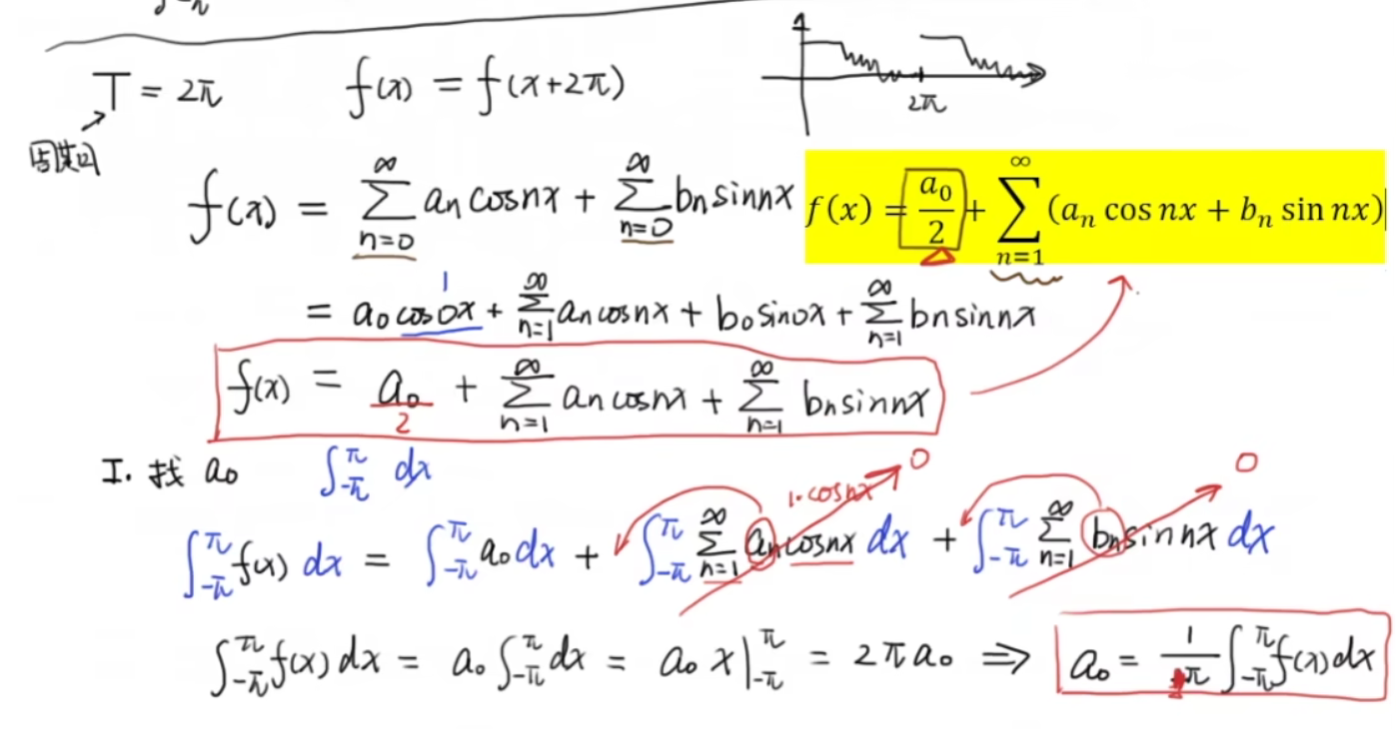 T = 2π f(x) = f(x+2π) 1 2π
周期
f(x) = ∑_{n=0}^{∞} an cosnx + ∑_{n=0}^{∞} bn sinnx f(x) = a₀/2 + ∑_{n=1}^{∞} (aₙ cos nx + bₙ sin nx)
1
= a₀ cos0x + ∑_{n=1}^{∞} an cosnx + b₀ sin0x + ∑_{n=1}^{∞} bn sinnx
f(x) = a₀/2 + ∑_{n=1}^{∞} an cosnx + ∑_{n=1}^{∞} bn sinnx
I. 找 a₀ ∫_{-π}^{π} dx
1·cosnx 0 0
∫_{-π}^{π} f(x) dx = ∫_{-π}^{π} a₀ dx + ∫_{-π}^{π} ∑_{n=1}^{∞} an cosnx dx + ∫_{-π}^{π} ∑_{n=1}^{∞} bn sinnx dx
∫_{-π}^{π} f(x) dx = a₀ ∫_{-π}^{π} dx = a₀ x |_{-π}^{π} = 2πa₀ ⇒ a₀ = 1/π ∫_{-π}^{π} f(x) dx